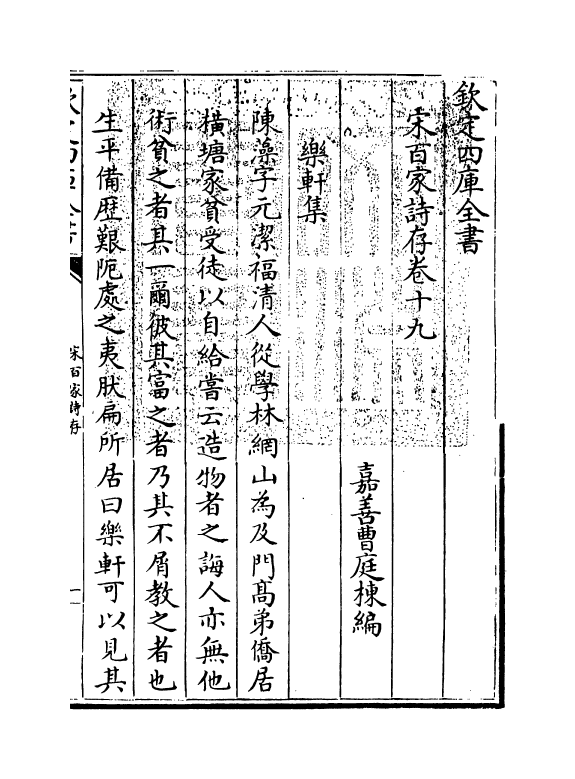 欽定四庫全書
宋百家詩存卷十九
嘉善曹庭棟編
樂軒集
陳藻字元潔福清人從學林網山為及門髙弟僑居
橫塘家貧受徒以自給嘗云造物者之誨人亦無他
術貧之者其一爾彼其富之者乃其不屑教之者也
生平備歴艱阨處之夷肰扁所居曰樂軒可以見其
欽定四庫全書
宋百家詩存
一